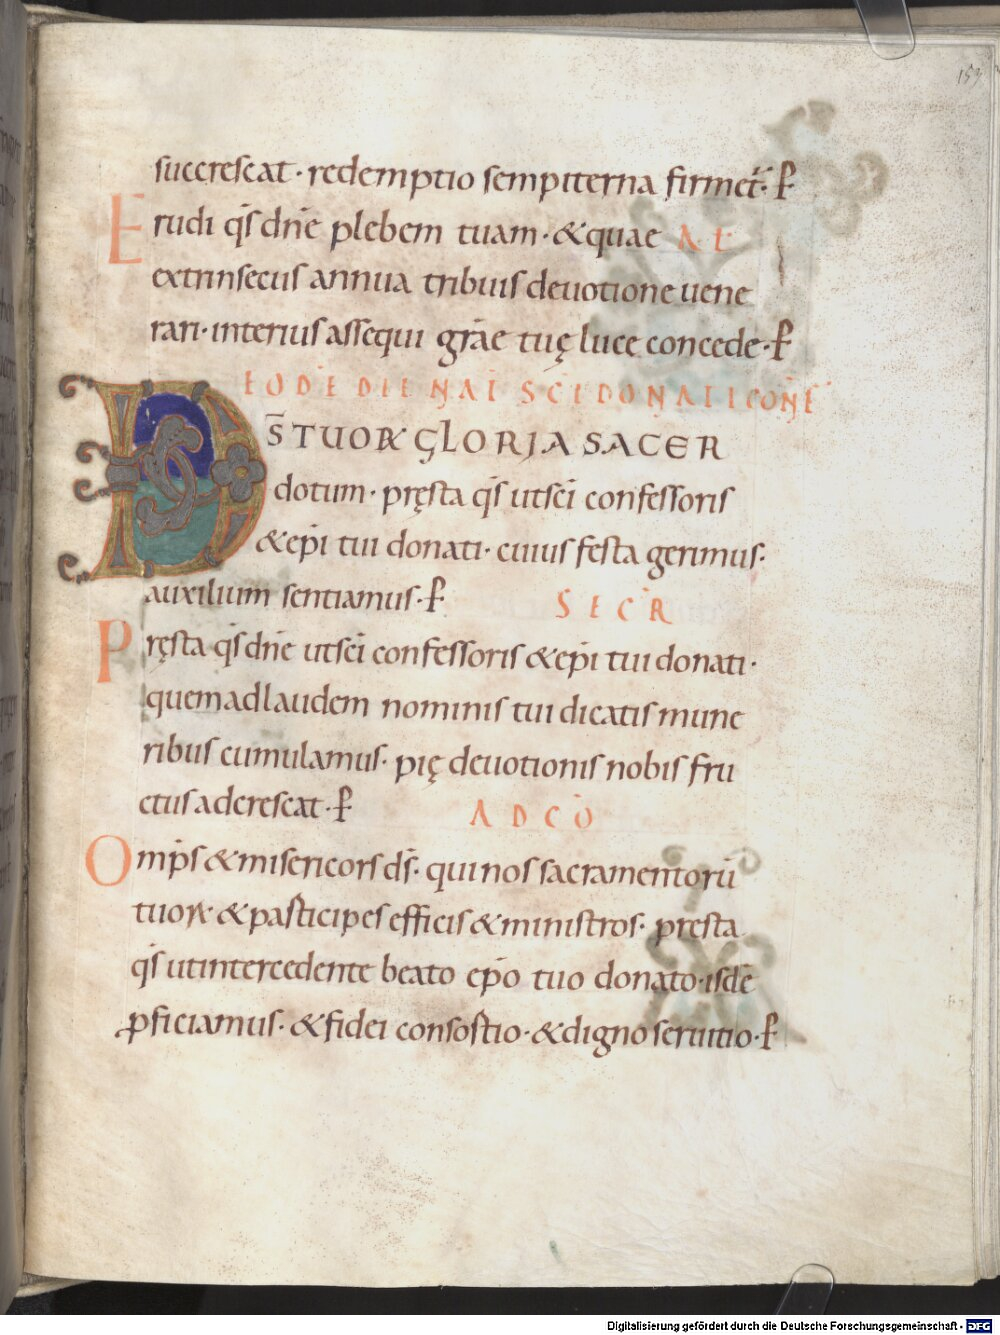 153
succrescat· redemptio sempiterna firmet᷑· P̵
Erudi q̄s dn̄e plebem tuam· &quae AL
extrinsecus annua tribuis deuotione uene
rari· interius assequi gr̄ae tuę luce concede· P̵
EOD̄E DIE NAT̄ SC̄I DONATI CONF̄
DS̄ TUORꝜ GLORIA SACER
dotum· pręsta q̄s ut sc̄i confessoris
& ep̄i tui donati· cuius festa gerimus·
auxilium sentiamus· P̵ SECR̄
Pręsta q̄s dn̄e ut sc̄i confessoris & ep̄i tui donati·
quem ad laudem nominis tui dicatis mune
ribus cumulamus· pię deuotionis nobis fru
ctus adcrescat· P̵ AD CŌ
Omp̄s & misericors ds̄· qui nos sacramentorū
tuoꝝ & pasticipes efficis & ministros· presta
q̄s ut intercedente beato ep̄o tuo donato· isdē
ꝓficiamus· & fidei consostio· & digno seruitio· P̵
Digitalisierung gefördert durch die Deutsche Forschungsgemeinschaft - DFG